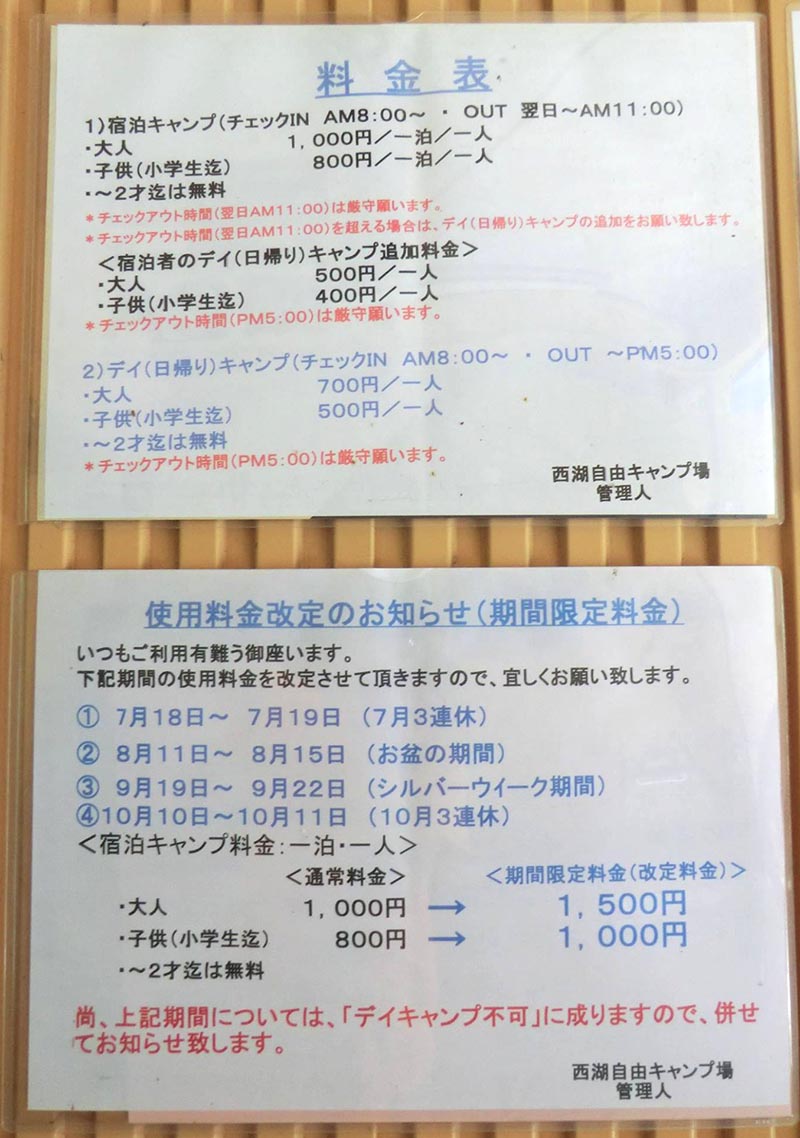 料金表
1)宿泊キャンプ(チェックIN AM8:00～ ・ OUT 翌日～AM11:00)
・大人 1,000円／一泊／一人
・子供(小学生迄) 800円／一泊／一人
・～2才迄は無料
＊チェックアウト時間(翌日AM11:00)は厳守願います。
＊チェックアウト時間(翌日AM11:00)を超える場合は、デイ(日帰り)キャンプの追加をお願い致します。
＜宿泊者のデイ(日帰り)キャンプ追加料金＞
・大人 500円／一人
・子供(小学生迄) 400円／一人
＊チェックアウト時間(PM5:00)は厳守願います。
2)デイ(日帰り)キャンプ(チェックIN AM8:00～ ・ OUT ～PM5:00)
・大人 700円／一人
・子供(小学生迄) 500円／一人
・～2才迄は無料
＊チェックアウト時間(PM5:00)は厳守願います。
西湖自由キャンプ場
管理人
使用料金改定のお知らせ(期間限定料金)
いつもご利用有難う御座います。
下記期間の使用料金を改定させて頂きますので、宜しくお願い致します。
① 7月18日～ 7月19日 (7月3連休)
② 8月11日～ 8月15日 (お盆の期間)
③ 9月19日～ 9月22日 (シルバーウイーク期間)
④10月10日～10月11日 (10月3連休)
＜宿泊キャンプ料金:一泊・一人＞
＜通常料金＞ ＜期間限定料金(改定料金)＞
・大人 1,000円 → 1,500円
・子供(小学生迄) 800円 → 1,000円
・～2才迄は無料
尚、上記期間については、「デイキャンプ不可」に成りますので、併せ
てお知らせ致します。
西湖自由キャンプ場
管理人